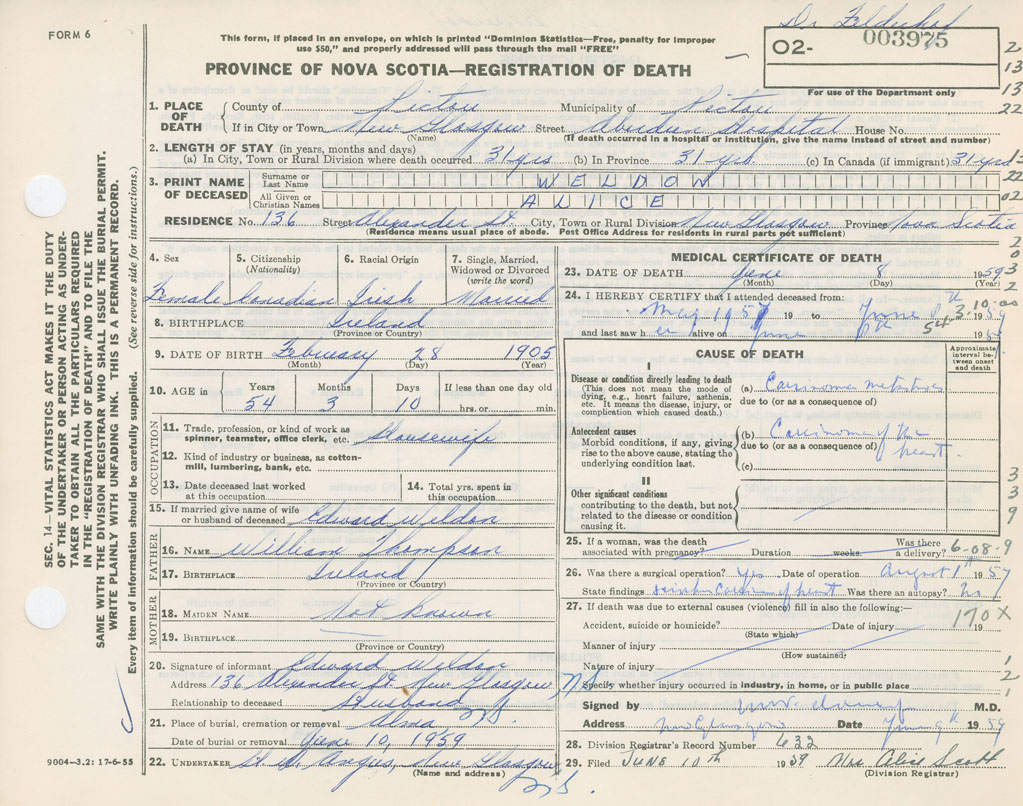 FORM 6
This form, if placed in an envelope, on which is printed "Dominion Statistics—Free, penalty for improper
use $50," and properly addressed will pass through the mail "FREE"
Dr
O2- 003975
For use of the Department only
PROVINCE OF NOVA SCOTIA—REGISTRATION OF DEATH
1. PLACE OF DEATH County of Pictou Municipality of Pictou
If in City or Town New Glasgow Street Aberdeen Hospital House No.
(Name) (If death occurred in a hospital or institution, give the name instead of street and number)
2. LENGTH OF STAY (in years, months and days)
(a) In City, Town or Rural Division where death occurred 31 yrs (b) In Province 31 yrs. (c) In Canada (if immigrant) 31 yrs
3. PRINT NAME OF DECEASED Surname or Last Name WELDON
All Given or Christian Names ALICE
RESIDENCE No. 136 Street Alexander St. City, Town or Rural Division New Glasgow Province Nova Scotia
(Residence means usual place of abode. Post Office Address for residents in rural parts not sufficient)
4. Sex
Female
5. Citizenship
(Nationality)
Canadian
6. Racial Origin
Irish
7. Single, Married,
Widowed or Divorced
(write the word)
Married
8. BIRTHPLACE Ireland
(Province or Country)
9. DATE OF BIRTH February 28 1905
(Month) (Day) (Year)
10. AGE in Years Months Days If less than one day old
54 3 10 hrs. or min.
OCCUPATION
11. Trade, profession, or kind of work as
spinner, teamster, office clerk, etc. Housewife
12. Kind of industry or business, as cotton-
mill, lumbering, bank, etc.
13. Date deceased last worked
at this occupation
14. Total yrs. spent in
this occupation
15. If married give name of wife
or husband of deceased Edward Weldon
FATHER
16. NAME William Thompson
17. BIRTHPLACE Ireland
(Province or Country)
MOTHER
18. MAIDEN NAME Not known
19. BIRTHPLACE
(Province or Country)
20. Signature of informant Edward Weldon
Address 136 Alexander St. New Glasgow N.S.
Relationship to deceased Husband
21. Place of burial, cremation or removal Alma N.S.
Date of burial or removal June 10, 1959
22. UNDERTAKER Angus, New Glasgow
(Name and address) N.S.
9004—3.2: 17-6-55
MEDICAL CERTIFICATE OF DEATH
23. DATE OF DEATH June 8 1959
(Month) (Day) (Year)
24. I HEREBY CERTIFY that I attended deceased from:
May 1957 19 to June 8th 1959
and last saw her alive on June 8th 1959
54 3. 10-00
CAUSE OF DEATH
Approximate
interval be-
tween onset
and death
I
Disease or condition directly leading to death
(This does not mean the mode of
dying, e.g., heart failure, asthenia,
etc. It means the disease, injury, or
complication which caused death.)
(a) Carcinoma
due to (or as a consequence of)
Antecedent causes
Morbid conditions, if any, giving
rise to the above cause, stating the
underlying condition last.
(b) Carcinoma of the
due to (or as a consequence of)
(c)
II
Other significant conditions
contributing to the death, but not
related to the disease or condition
causing it.
25. If a woman, was the death
associated with pregnancy? Duration weeks. Was there
a delivery? 6-08-9
26. Was there a surgical operation? Yes. Date of operation August 1st 1957
State findings Was there an autopsy? no
27. If death was due to external causes (violence) fill in also the following:—
Accident, suicide or homicide? Date of injury 19
(State which)
170X
Manner of injury
(How sustained)
Nature of injury
Specify whether injury occurred in industry, in home, or in public place
Signed by M.D.
Address New Glasgow N.S. Date June 9th 1959
28. Division Registrar's Record Number 632
29. Filed JUNE 10TH 1959 Mrs Alice Scott
(Division Registrar)
SEC. 14—VITAL STATISTICS ACT MAKES IT THE DUTY
OF THE UNDERTAKER OR PERSON ACTING AS UNDER-
TAKER TO OBTAIN ALL THE PARTICULARS REQUIRED
IN THE "REGISTRATION OF DEATH" AND TO FILE THE
SAME WITH THE DIVISION REGISTRAR WHO SHALL ISSUE THE BURIAL PERMIT.
WRITE PLAINLY WITH UNFADING INK. THIS IS A PERMANENT RECORD.
Every item of information should be carefully supplied. (See reverse side for instructions.)
2
13
13
22
13
22
02
2
0
3
2
3
3
9
1
2
1